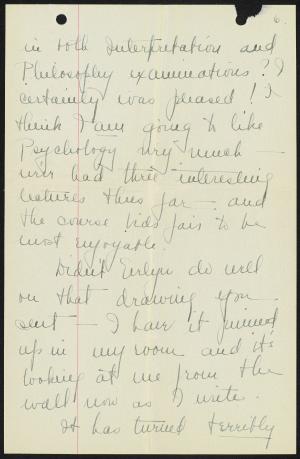 6.
in both Interpretation and
Philosophy examinations? I
certainly was pleased! I
think I am going to like
Psychology very much —
we've had three interesting
lectures thus far — and
the course bids fair to be
most enjoyable.
Didn't Evelyn do well
on that drawing you
sent — I have it pinned
up in my room and it's
looking at me from the
wall now as I write.
It has turned terribly